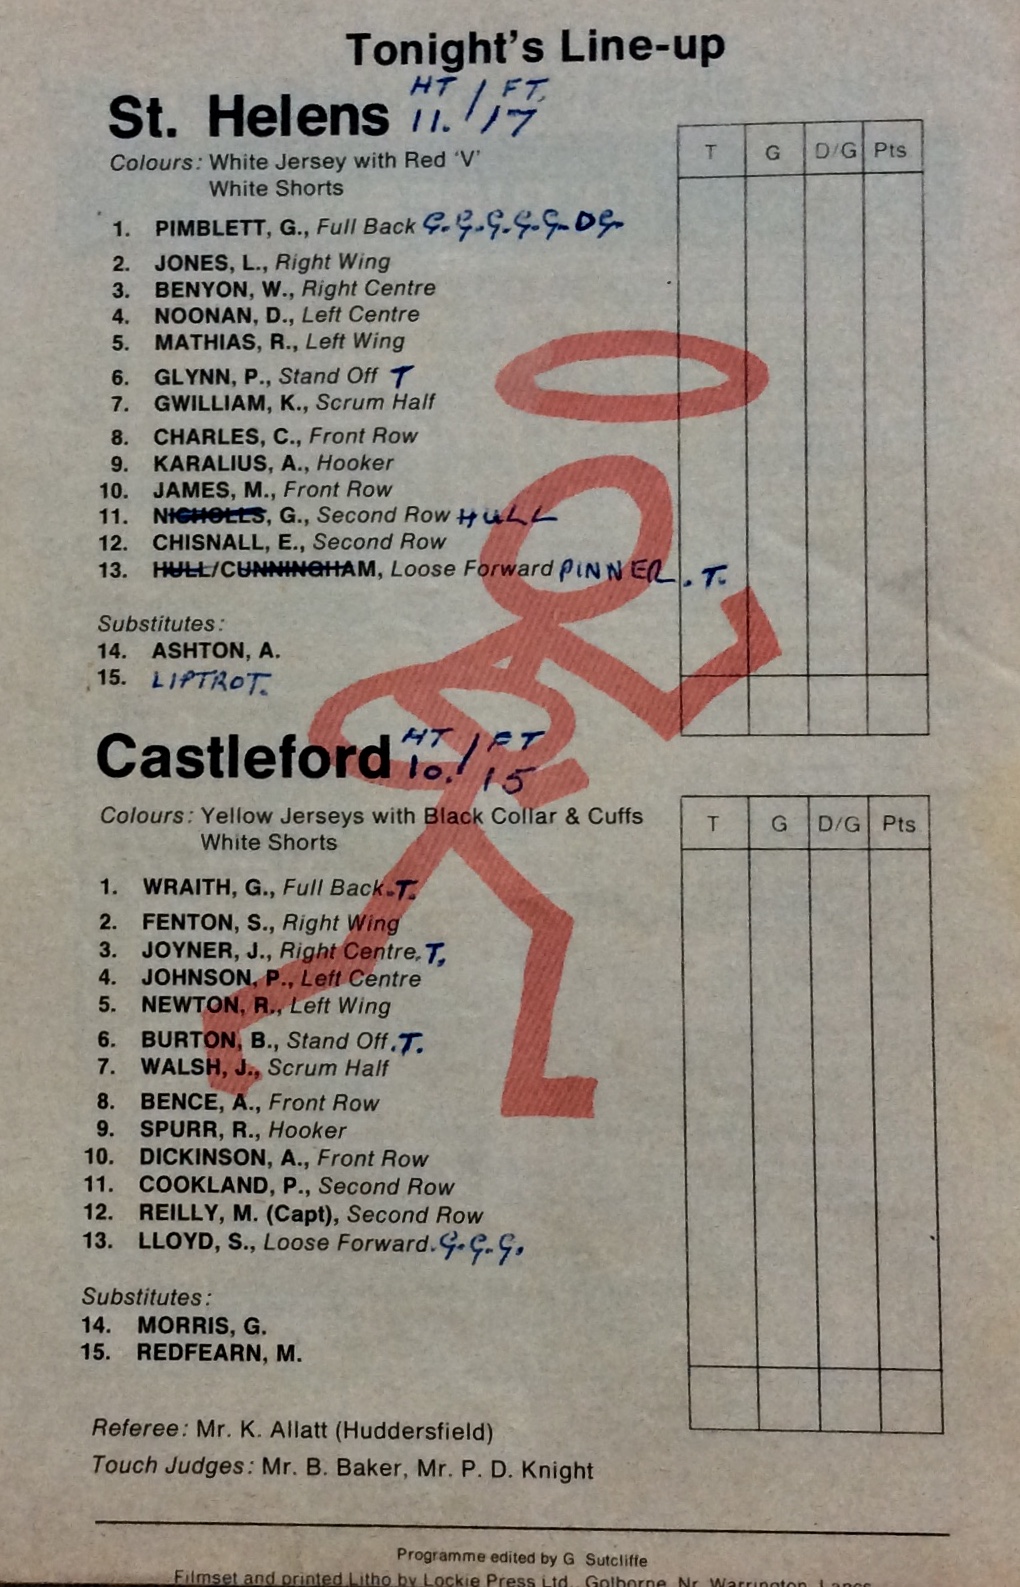 Tonight's Line-up
St. Helens HT 11. / FT. 17
Colours: White Jersey with Red 'V'
White Shorts
T G D/G Pts
1. PIMBLETT, G., Full Back G. G. G. G. G. DG.
2. JONES, L., Right Wing
3. BENYON, W., Right Centre
4. NOONAN, D., Left Centre
5. MATHIAS, R., Left Wing
6. GLYNN, P., Stand Off T
7. GWILLIAM, K., Scrum Half
8. CHARLES, C., Front Row
9. KARALIUS, A., Hooker
10. JAMES, M., Front Row
11. NICHOLLS, G., Second Row HULL
12. CHISNALL, E., Second Row
13. HULL/CUNNINGHAM, Loose Forward PINNER. T.
Substitutes:
14. ASHTON, A.
15. LIPTROT.
Castleford HT 10. / FT 15
Colours: Yellow Jerseys with Black Collar & Cuffs
White Shorts
T G D/G Pts
1. WRAITH, G., Full Back. T.
2. FENTON, S., Right Wing
3. JOYNER, J., Right Centre. T.
4. JOHNSON, P., Left Centre
5. NEWTON, R., Left Wing
6. BURTON, B., Stand Off. T.
7. WALSH, J., Scrum Half
8. BENCE, A., Front Row
9. SPURR, R., Hooker
10. DICKINSON, A., Front Row
11. COOKLAND, P., Second Row
12. REILLY, M. (Capt), Second Row
13. LLOYD, S., Loose Forward. G. G. G.
Substitutes:
14. MORRIS, G.
15. REDFEARN, M.
Referee: Mr. K. Allatt (Huddersfield)
Touch Judges: Mr. B. Baker, Mr. P. D. Knight
Programme edited by G Sutcliffe
Filmset and printed Litho by Lockie Press Ltd., Golborne, Nr. Warrington, Lancs.